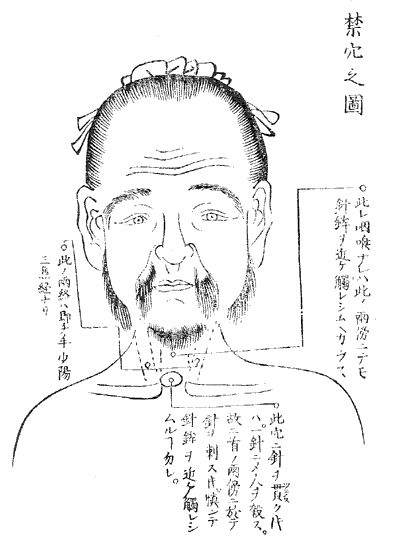 禁穴之圖
此レ咽喉ナレバ此ノ兩傍ニテモ
針鋒ヲ近ケ觸レシムヘカラス
此ノ兩終ハ即チ手少陽
三焦經ナリ
此穴ニ針ヲ貫ク片
ハ針ニメ人ヲ殺ス。
故ニ首ノ兩傍ニ於テ
針ヲ刺ス片慎ンデ
針鋒ヲ近ケ觸レシ
ムルヿ勿レ。